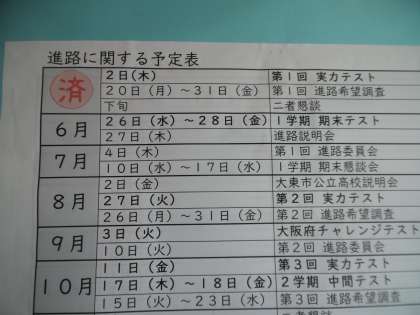 進路に関する予定表
済
2日(木) 第1回 実力テスト
20日(月)~31日(金) 第1回 進路希望調査
下旬 二者懇談
6月
26日(水)~28日(金) 1学期 期末テスト
27日(木) 進路説明会
7月
4日(木) 第1回 進路委員会
10日(水)~17日(水) 1学期 期末懇談会
8月
2日(金) 大東市公立高校説明会
27日(火) 第2回 実力テスト
26日(月)~31日(金) 第2回 進路希望調査
9月
3日(火) 大阪府チャレンジテスト
10日(火) 第2回 進路委員会
10月
11日(金) 第3回 実力テスト
17日(木)~18日(金) 2学期 中間テスト
15日(火)~23日(水) 第3回 進路希望調査